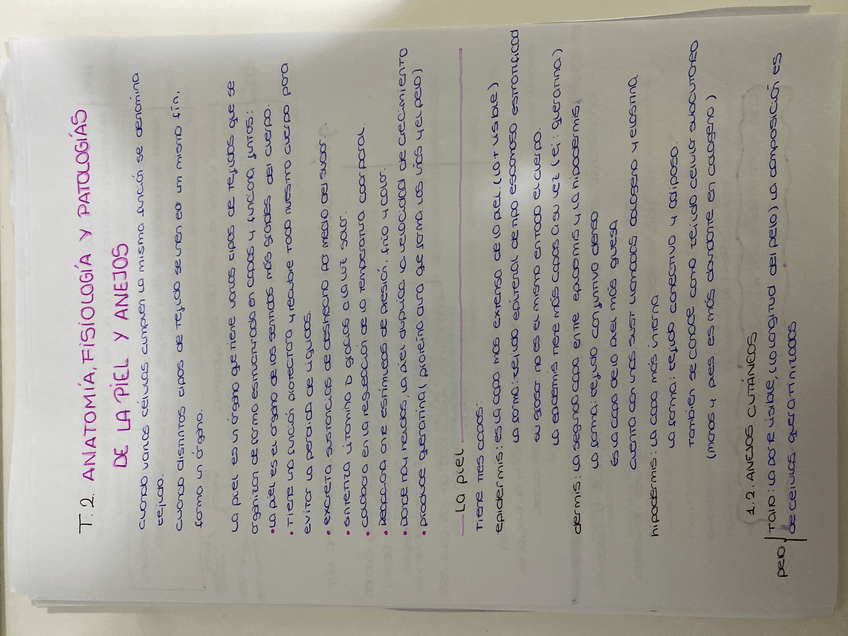 T.2. ANATOMÍA, FISIOLOGÍA Y PATOLOGÍAS
DE LA PIEL Y ANEJOS
cuando varias células cumplen la misma función se denomina
tejido.
cuando distintos tipos de tejido se unen por un mismo fin,
forma un órgano.
La piel es un órgano que tiene varios tipos de tejidos que se
organizan de forma estructurada en capas y funciona juntos:
• La piel es el órgano de los sentidos más grandes del cuerpo.
• Tiene una función protectora y recubre todo nuestro cuerpo para
evitar la perdida de liquidos.
• excreta sustancias de deshecho por medio del sudor.
• sintetiza vitamina D gracias a la luz solar.
• colabora en la regulación de la temperatura corporal
• Reacciona ante estímulos de presión, frío y calor.
• Donde hay heridas, la piel duplica la velocidad de crecimiento
• produce queratina (proteína dura que forma las uñas y el pelo)
La piel
Tiene tres capas:
epidermis: es la capa más extensa de la piel (la + visible)
La forma: tejido epitelial de tipo escamoso estratificado
su grosor no es el mismo en todo el cuerpo.
La epidermis tiene más capas a su vez (ej: queratina)
dermis: La segunda capa entre epidermis y la hipodermis.
La forma: tejido conjuntivo denso
Es la capa de la piel más gruesa
cuenta con más sust llamadas colageno y elastina.
hipodermis: La capa más interna
La forma: tejido conectivo y adiposo.
También se conoce como tejido celular subcutáneo
(manos y pies es más abundante en colágeno)
1.2. ANEJOS CUTÁNEOS
pelo Tallo: La parte visible, (la longitud del pelo) la composición es
de celulas queratinizadas